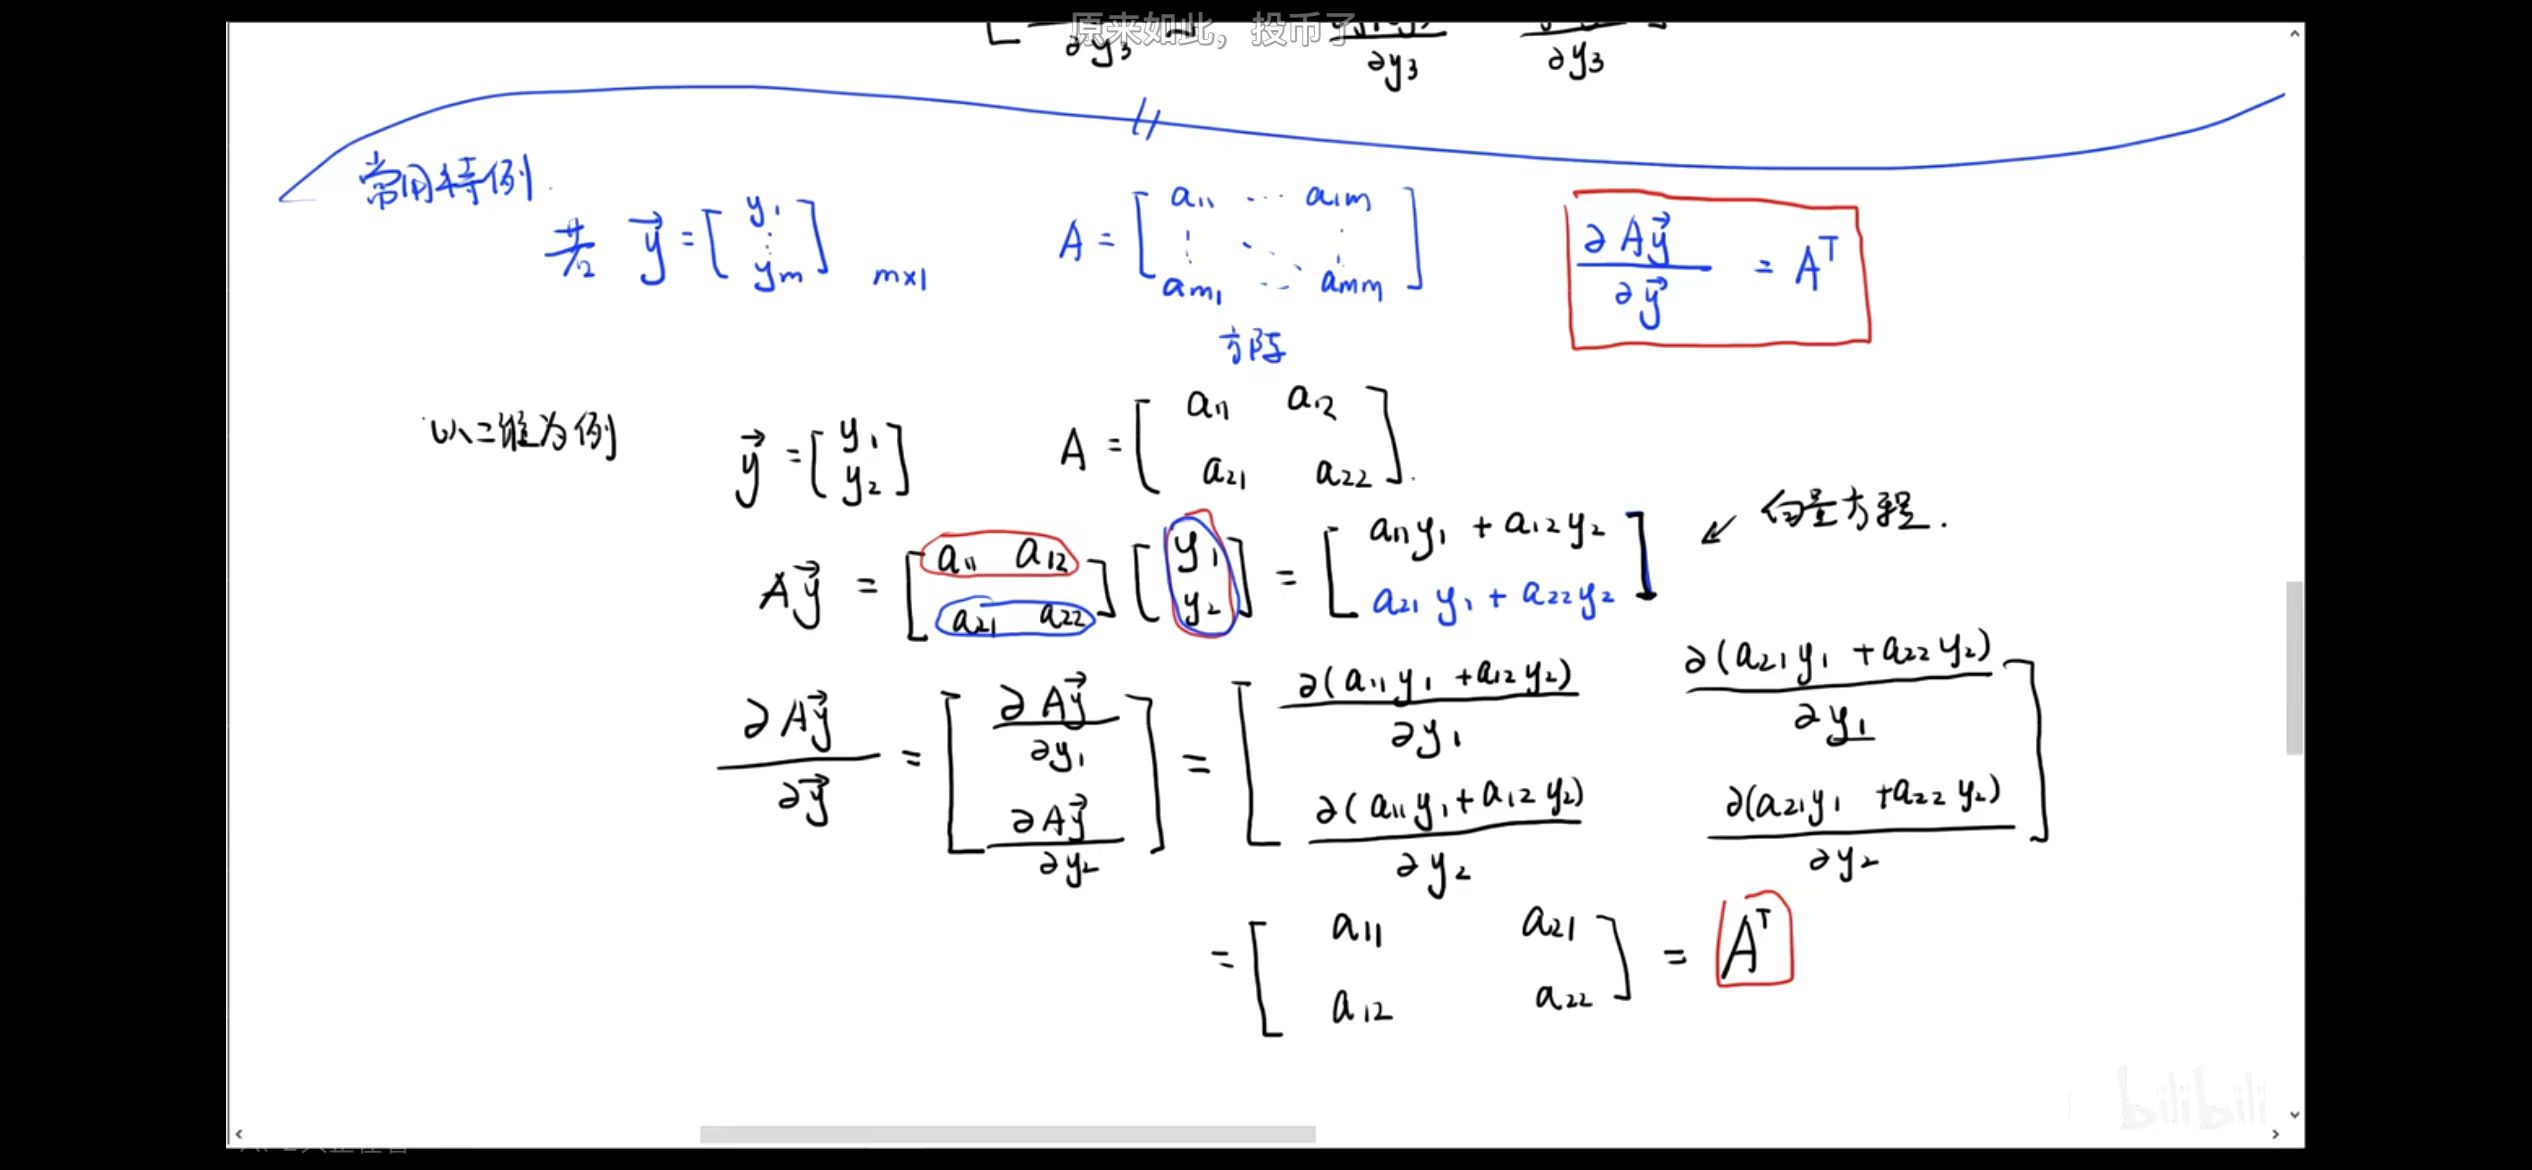 原来如此，投币了
∂y₃ ∂y₃ ∂y₃
常用特例
若 y⃗ = [ y₁ ⋮ yₘ ] m×1 A = [ a₁₁ ⋯ a₁ₘ ⋮ ⋱ ⋮ aₘ₁ ⋯ aₘₘ ] ∂Ay⃗ / ∂y⃗ = Aᵀ
方阵
以二维为例 y⃗ = [ y₁ y₂ ] A = [ a₁₁ a₁₂ a₂₁ a₂₂ ]
向量方程.
Ay⃗ = [ a₁₁ a₁₂ a₂₁ a₂₂ ] [ y₁ y₂ ] = [ a₁₁y₁ + a₁₂y₂ a₂₁y₁ + a₂₂y₂ ]
∂Ay⃗ / ∂y⃗ = [ ∂Ay⃗ / ∂y₁ ∂Ay⃗ / ∂y₂ ] = [ ∂(a₁₁y₁ + a₁₂y₂) / ∂y₁ ∂(a₂₁y₁ + a₂₂y₂) / ∂y₁ ∂(a₁₁y₁ + a₁₂y₂) / ∂y₂ ∂(a₂₁y₁ + a₂₂y₂) / ∂y₂ ]
= [ a₁₁ a₂₁ a₁₂ a₂₂ ] = Aᵀ
bilibili